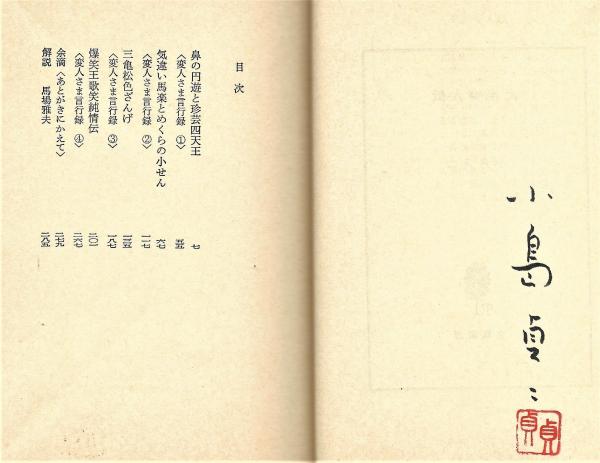 小島貞二
貞貞
目次
鼻の円遊と珍芸四天王 七
〈変人さま言行録 ①〉 五五
気違い馬楽とめくらの小せん 六七
〈変人さま言行録 ②〉 一一七
三亀松色ざんげ 一三五
〈変人さま言行録 ③〉 一八七
爆笑王歌笑純情伝 二〇一
〈変人さま言行録 ④〉 二六七
余滴〈あとがきにかえて〉 二七九
解説 馬場雅夫 二八五